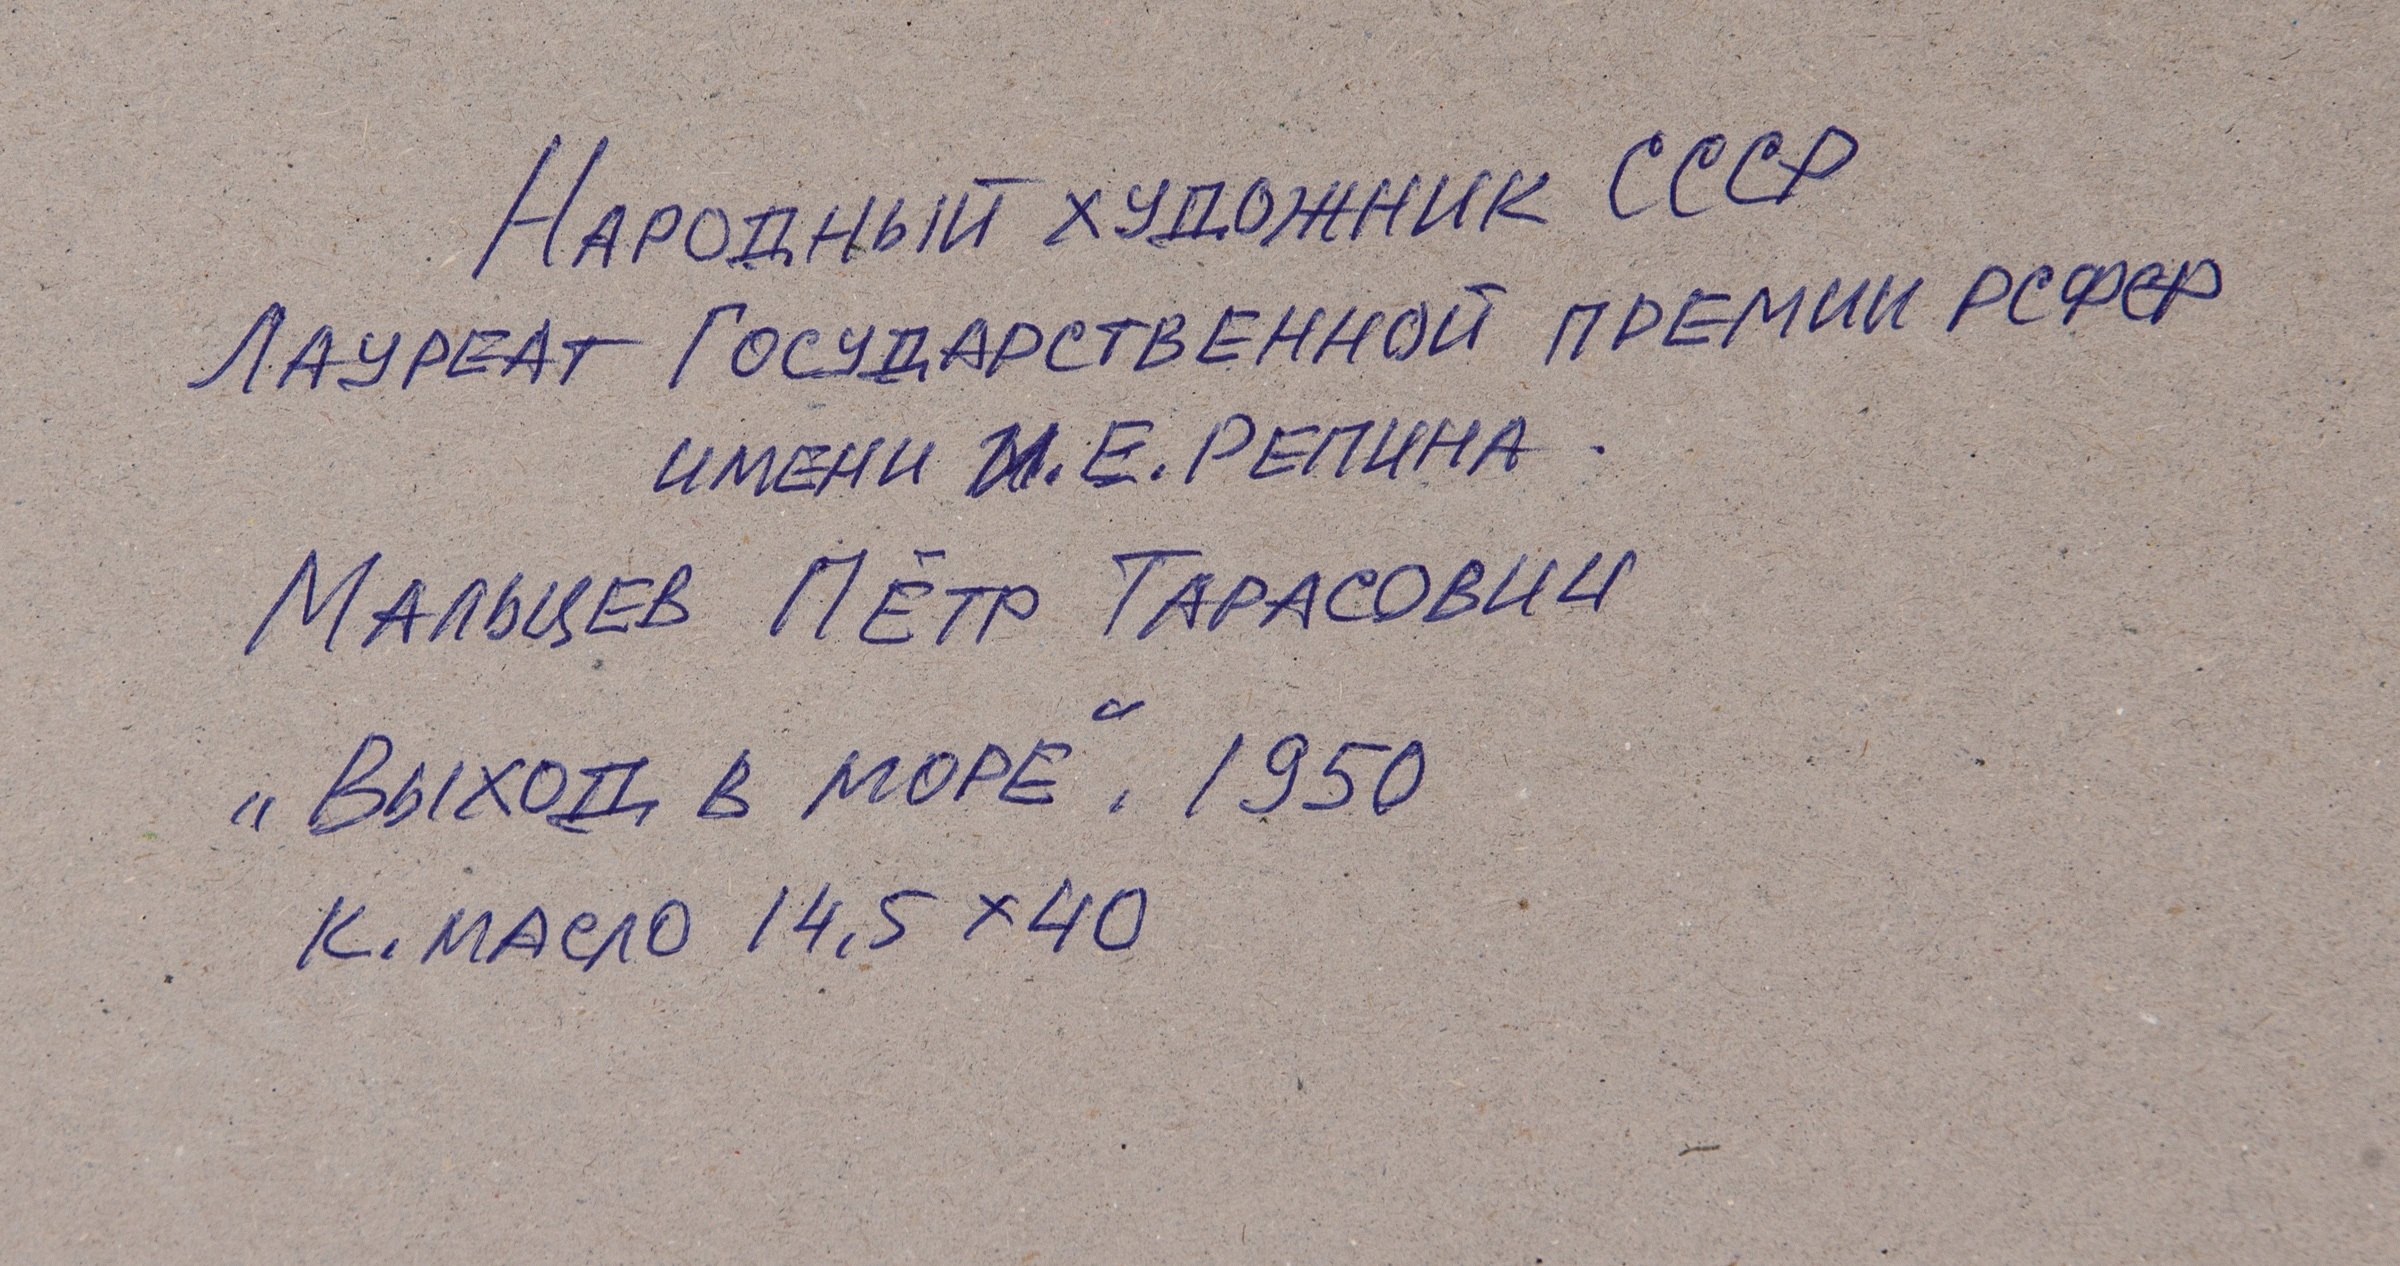 Народный художник СССР
Лауреат Государственной премии РСФСР
имени И.Е. Репина.
Мальцев Пётр Тарасович
„Выход в море“. 1950
К. масло 14,5 × 40